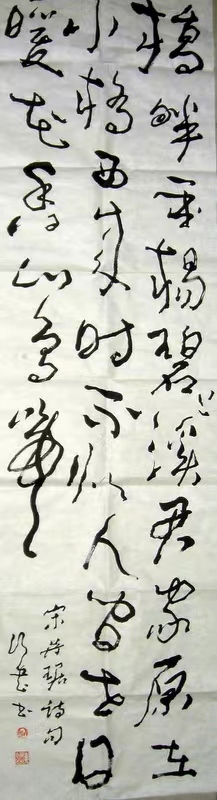 橋畔垂楊碧下溪君家原在
小橋西來時不似人間世日
暖花香山鳥啼
宋吴琚詩句
書